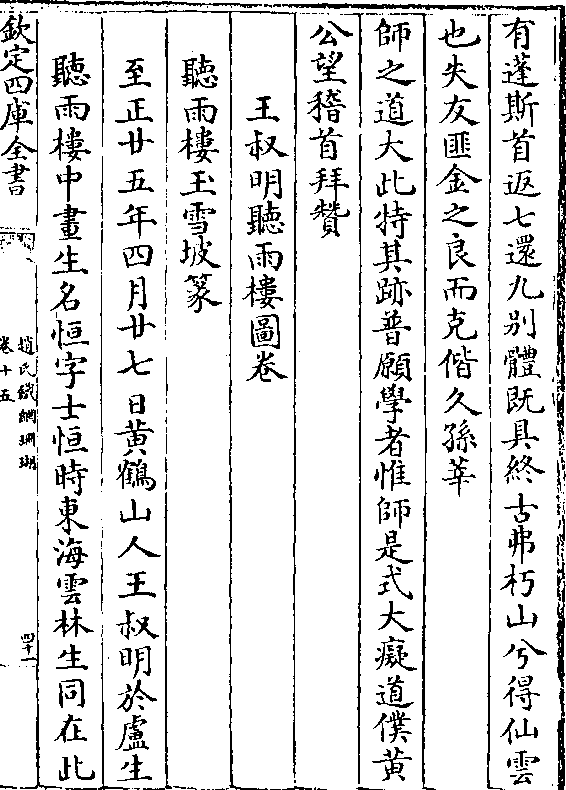 有蓬斯首返七還九别體既具終古弗朽山兮得仙雲
也失友匪金之良而克偕久孫莘
師之道大此特其跡普願學者惟師是式大癡道僕黄
公望稽首拜贊
王叔明聽雨樓圖卷
聽雨樓玉雪坡篆
至正廿五年四月廿七日黄鶴山人王叔明於盧生
聽雨樓中畫生名恒字士恒時東海雲林生同在此
欽定四庫全書
趙氏鐵網珊瑚
卷十五
四十一